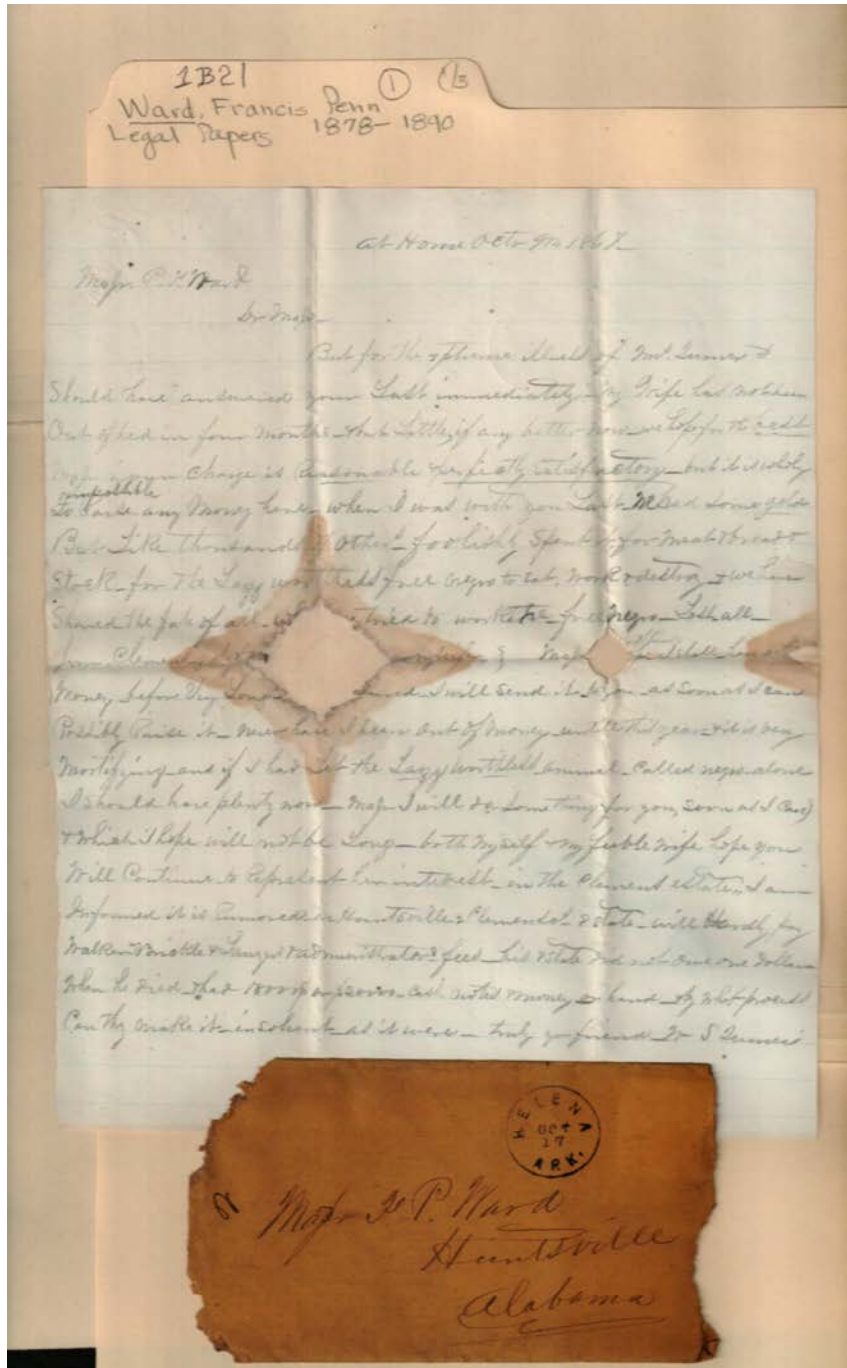 1B21 ① 1/3
Ward, Francis Penn
Legal Papers 1878-1890
at Home Octr 9th 186
Majr P. Ward
Dr Majr
But for the extreme illness of Mrs &
Should have answered your Last immediately - My Wife has not been
Out of bed in four Months - but Little, if any better now - we hope for the best
your Charge is Reasonable & perfectly satisfactory - but it is wholy
impossible
To raise any Money here - when I was with you Last some gold
But Like thousands of others foolishly Spent it for Meat & bread &
Stock - for the Lazy worthless free negro to Eat, Work & destroy & we have
Shared the fate of all - tried to work the free negro - Lost all -
from
Money, before very Long - I will send it to you as soon as I can
Possibly Raise it - never have I been out of money until this year & it is very
Mortifying - and if I had Let the Lazy worthless animal - Called negro alone
I should have plenty now - Majr I will do something for you, soon as I can
& which I hope will not be Long - both Myself & my feeble Wife hope you
Will Continue to Represent her interest - in the Clement estate - I am
Informed it is Rumored in Huntsville Estate - will Hardly pay
Walker Brickle & & administrators fees - his Estate did not owe one Dollar
When he died & had in Cash notes & money on hand - By what process
Can they make it - insolvent - as it were - truly yr friend
HELENA
OCT
17
ARK.
Majr F P. Ward
Huntsville
Alabama